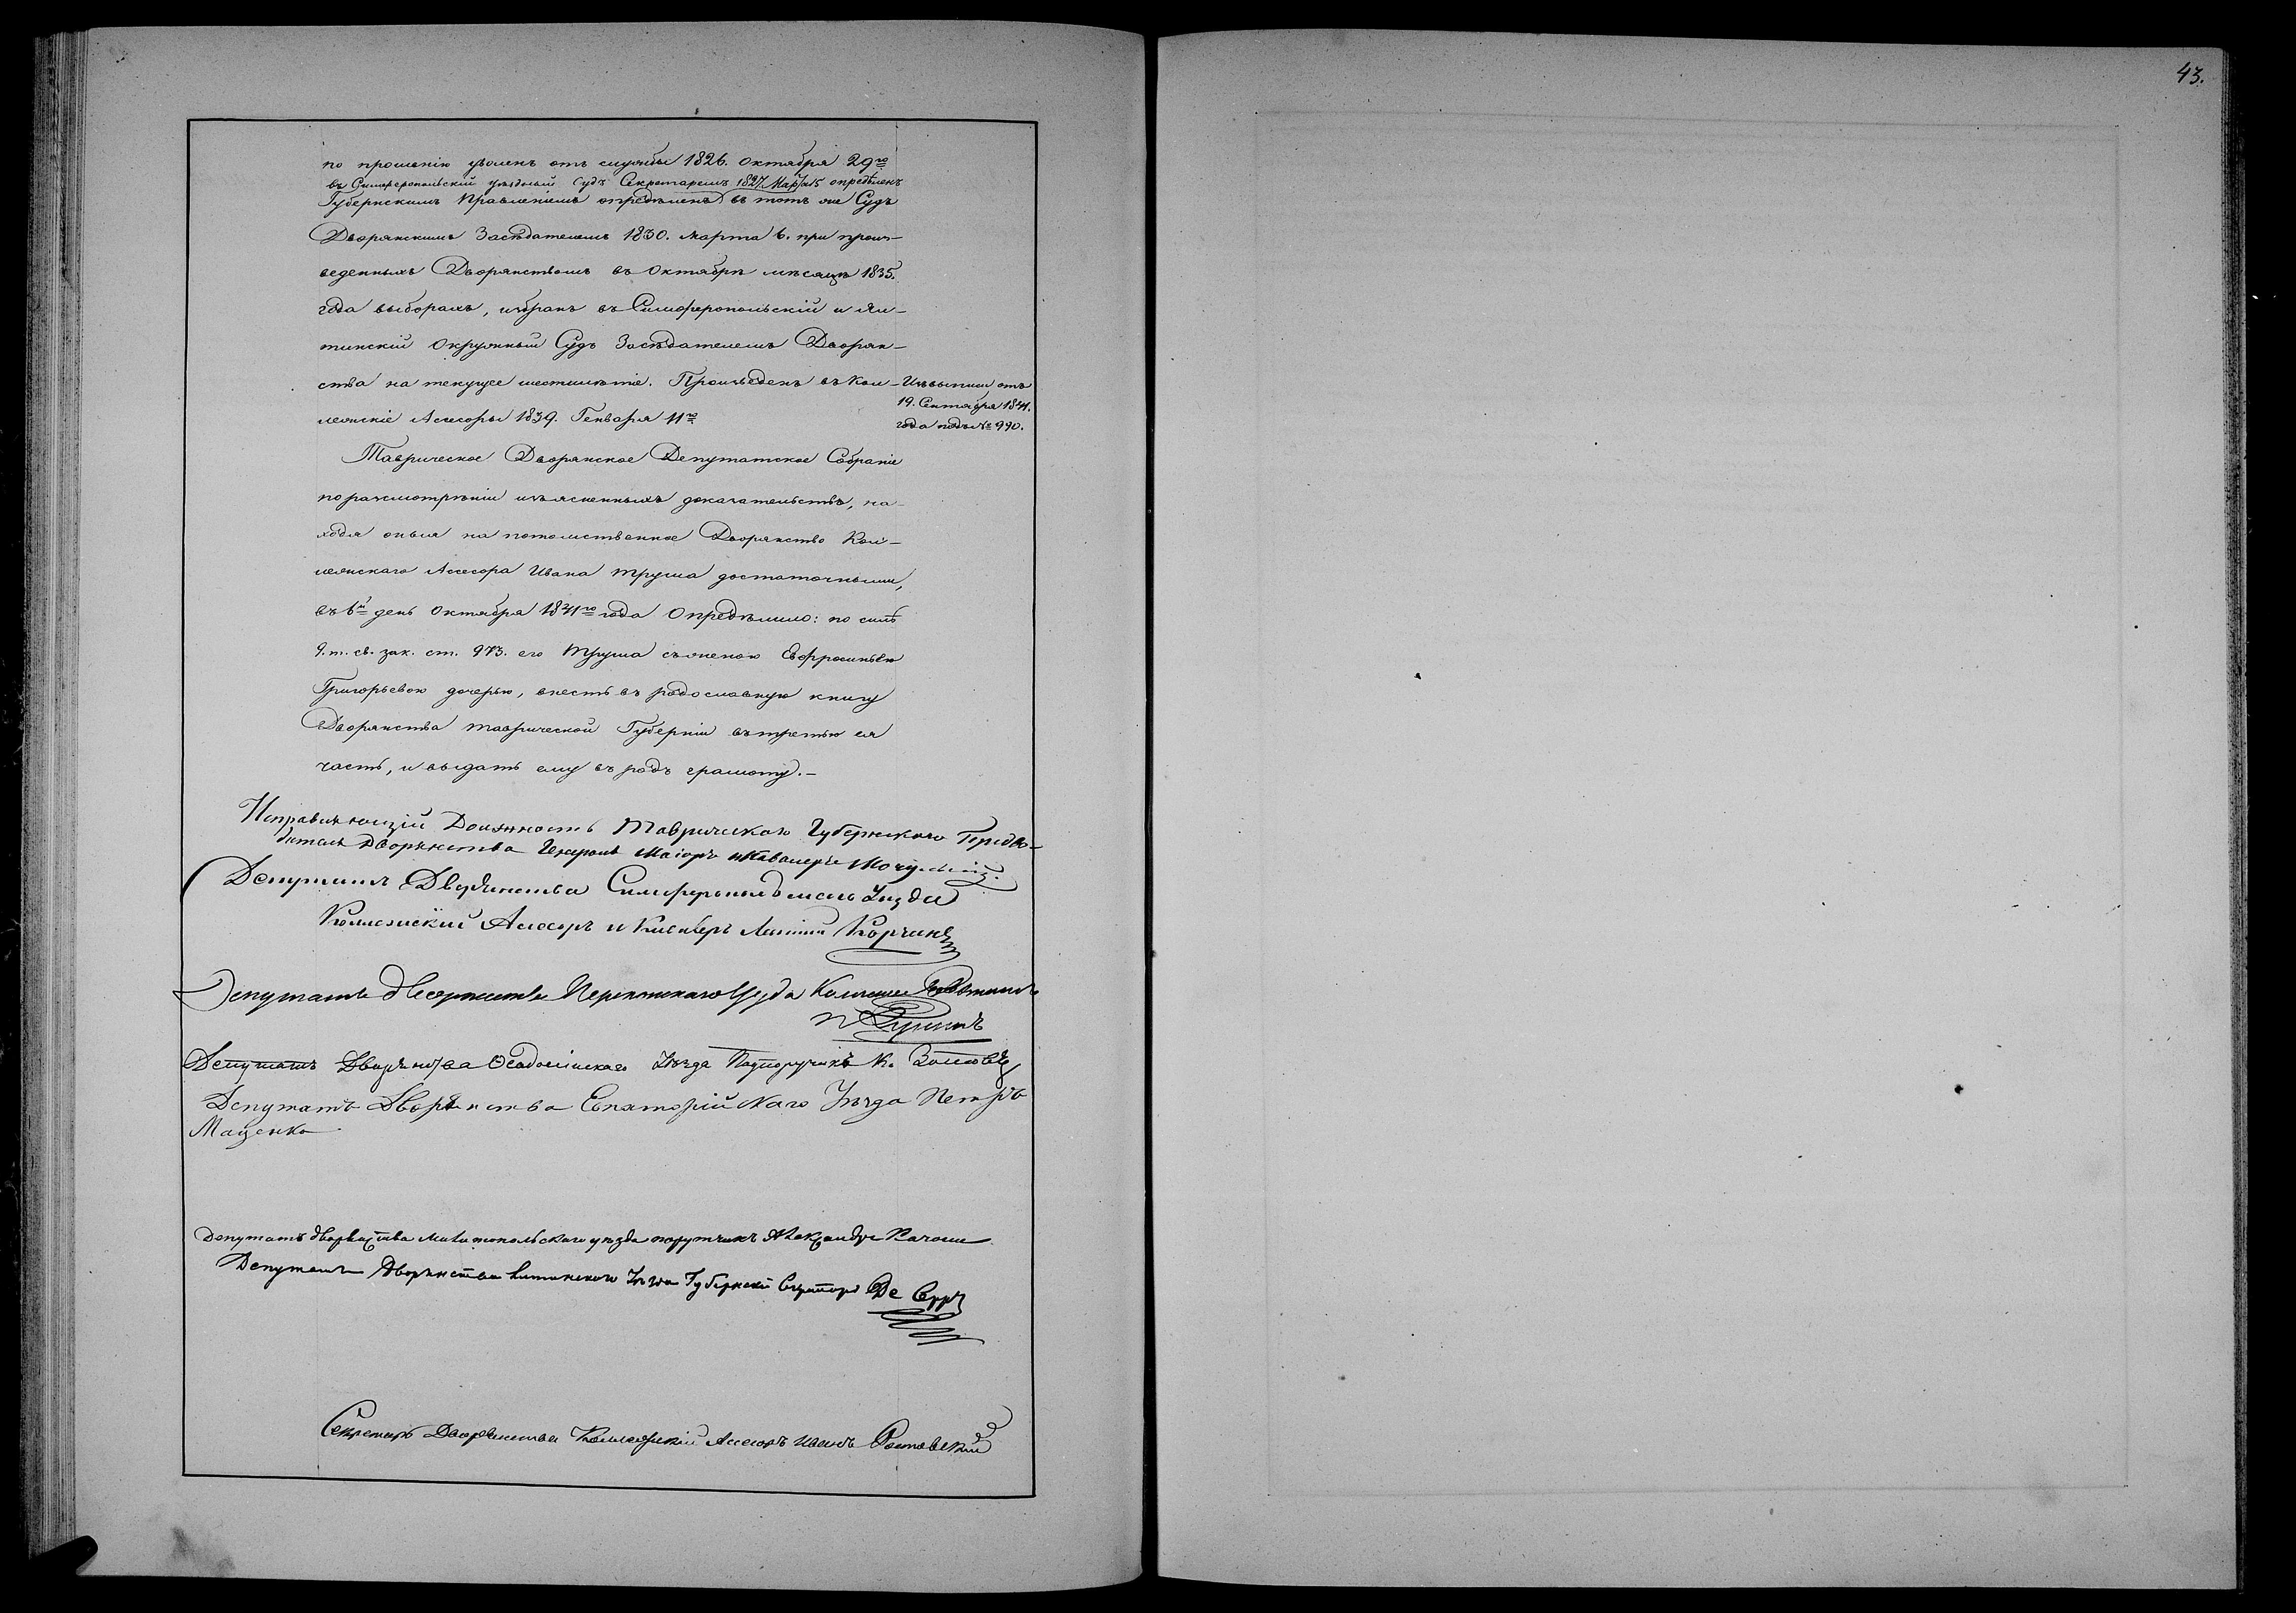 43.
по прошенію уволенъ отъ службы 1826. Октября 29го
въ Симферопольскій уѣздный Судъ Секретаремъ 1827 Марта 15 опредѣленъ
Губернскимъ Правленіемъ опредѣленъ въ тотъ же Судъ
Дворянскимъ Засѣдателемъ 1830. Марта 6. при произ-
веденныхъ Дворянствомъ въ Октябрѣ мѣсяцѣ 1835.
года выборахъ, избранъ въ Симферопольскій и Ял-
тинскій Окружный Судъ Засѣдателемъ Дворян-
ства на текущее шестилѣтіе. Произведенъ въ Кол-
лежскіе Асессоры 1839. Генваря 11го
19. Сентября 1841.
года подъ № 990.
Таврическое Дворянское Депутатское Собраніе
по разсмотрѣніи изъясненныхъ доказательствъ, на-
ходя оныя на потомственное Дворянство Кол-
лежскаго Ассесора Ивана Труша достаточными,
въ 6й день Октября 1841го года Опредѣлило: по силѣ
9. т. св. зак. ст. 973. его Труша съ женою Евфросиньею
Григорьевою дочерью, внесть въ родословную книгу
Дворянства Таврической Губерніи въ третью ея
часть, и выдать ему въ родъ грамоту.-
Исправляющій Должность Таврическаго Губернскаго Предво-
дителя Дворянства Генералъ Маіоръ и Кавалеръ
Депутатъ Дворянства Симферопольскаго Уѣзда
Коллежскій Асесоръ и Кавалеръ
Депутатъ Дворянства Перекопскаго Уѣзда
Депутатъ Дворянства Ѳеодосійскаго Уѣзда Подпоручикъ К.
Депутатъ Дворянства Евпаторійскаго Уѣзда Петръ
Маценко
Депутатъ дворянства Мелитопольскаго уѣзда порутчикъ Александръ
Депутатъ Дворянства Ялтинскаго Уѣзда Губернскій Секретарь Де Серръ
Секретарь Дворянства Коллежскій Асесоръ Иванъ Ростовскій